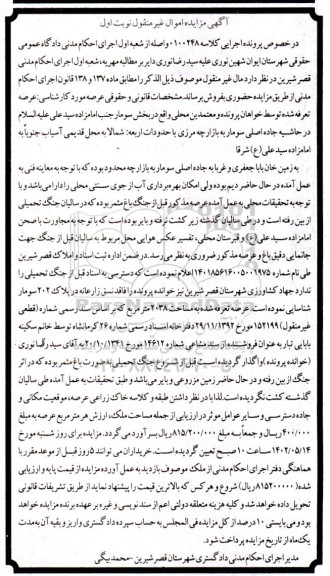 آگهی مزایده اموال غیر منقول نوبت اول
در خصوص پرونده اجرایی کلاسه ۰۱۰۰۲۴۸ واصله از شعبه اول اجرای احکام مدنی دادگاه عمومی
حقوقی شهرستان ایوان شهین نوری علیه سید رضا نوری دایر بر مطالبه مهریه، شعبه اول اجرای احکام مدنی
قصر شیرین در نظر دارد مال غیر منقول موصوف ذیل الذکر را مطابق ماده ۱۳۷ و ۱۳۸ قانون اجرای احکام
مدنی از طریق مزایده حضوری بفروش برساند. مشخصات قانونی و حقوقی عرصه مورد کارشناسی: عرصه
تعرفه شده توسط خواهان پرونده و معتمدین محلی واقع در بخش سومار جنب امامزاده سید علی علیه السلام
در حاشیه جاده اصلی سومار به بازارچه مرزی با حدودات اربعه: شمالا به محل قدیمی آسیاب جنوباً به
امامزاده سید علی (ع) شرقا
به زمین خان بابا جعفری و غربا به جاده اصلی سومار به بازارچه محدود بوده که با توجه به معاینه فنی به
عمل آمده در حال حاضر دیم بوده ولی امکان بهره برداری آب از جوی سنتی محلی را دارا می باشد و با
توجه به تحقیقات محلی به عمل آمده عرصه مذکور قبل از جنگ باغ مثمر بوده که در سالیان جنگ تحمیلی
از بین رفته است و در طی سالیان گذشته زیر کشت نرفته و بایر بوده است که با توجه به مجاورت با صحن
امامزاده سید علی (ع) و قبرستان محلی، تفسیر عکس هوایی محل مربوط به سالیان قبل از جنگ جهت
جانمایی دقیق باغ و عرصه مذکور ضروری به نظر می رسد. در ضمن اداره ثبت اسناد و املاک قصر شیرین
طی نامه شماره ۱۴۰۱۸۵۶۱۶۰۰۵۰۰۱۹۷۵ اعلام نموده است که دسترسی به اسناد قبل از جنگ تحمیلی را
ندارد جهاد کشاورزی شهرستان قصر شیرین نیز خوانده پرونده را فاقد نسق زارعانه در پلاک ۲۰۲ سومار
شناسایی نموده است. عرصه تعرفه شده به مساحت ۲۰۳۸ متر مربع که بر اساس سند رسمی شماره (قطعی
غیر منقول) ۱۵۲۱۹۹ مورخ ۲۹/۱۱/۱۳۹۲ دفترخانه اسناد رسمی شماره ۲۶ کرمانشاه توسط خانم سکینه
بابایی تبار به عنوان فروشنده از سند مشاعی شماره ۱۴۶۱۲ مورخ ۲۰/۱۰/۱۳۴۱ به آقای سید رضا نوری
(خوانده پرونده) واگذار گردیده است. قبل از شروع جنگ تحمیلی به صورت باغ مثمر بوده که در اثر
جنگ از بین رفته و در حال حاضر زمین مزروعی و بایر می باشد و طبق تحقیقات به عمل آمده طی سالیان
گذشته کشت نگردیده است. لذا با در نظر داشتن طبقه و کلاسه خاک زراعی عرصه، موقعیت مکانی و
جاده دسترسی و سایر عوامل موثر در ارزیابی از جمله مساحت ملک، ارزش هر متر مربع عرصه به مبلغ
۴۰۰/۰۰۰ ریال و جمعاً به مبلغ ۸۱۵/۲۰۰/۰۰۰ ریال برآورد می گردد. مزایده برای روز شنبه مورخ
۱۴۰۲/۰۵/۱۴ ساعت ۱۰ صبح تعیین گردیده است. خریداران می توانند ۵ روز قبل از موعد مقرر با
هماهنگی دفتر اجرای احکام مدنی از ملک موصوف بازدید به عمل آورده مزایده از قیمت پایه و ارزیابی
شده (۸۱۵۲۰۰۰۰۰ ریال) شروع و هر کس که بالاترین قیمت را پیشنهاد نماید از طریق تشریفات قانونی
تحویل داده خواهد شد و کلیه هزینه متعلقه دولتی اعم از سند نویسی و غیره بر عهده برنده مزایده خواهد
بود و می بایستی ۱۰ درصد از کل مزایده فی المجلس به حساب سپرده دادگستری واریز و بقیه آن به مدت
یک ماه از تاریخ مزایده پرداخت شود.
مدیر اجرای احکام مدنی دادگستری شهرستان قصر شیرین - محمد بیگی